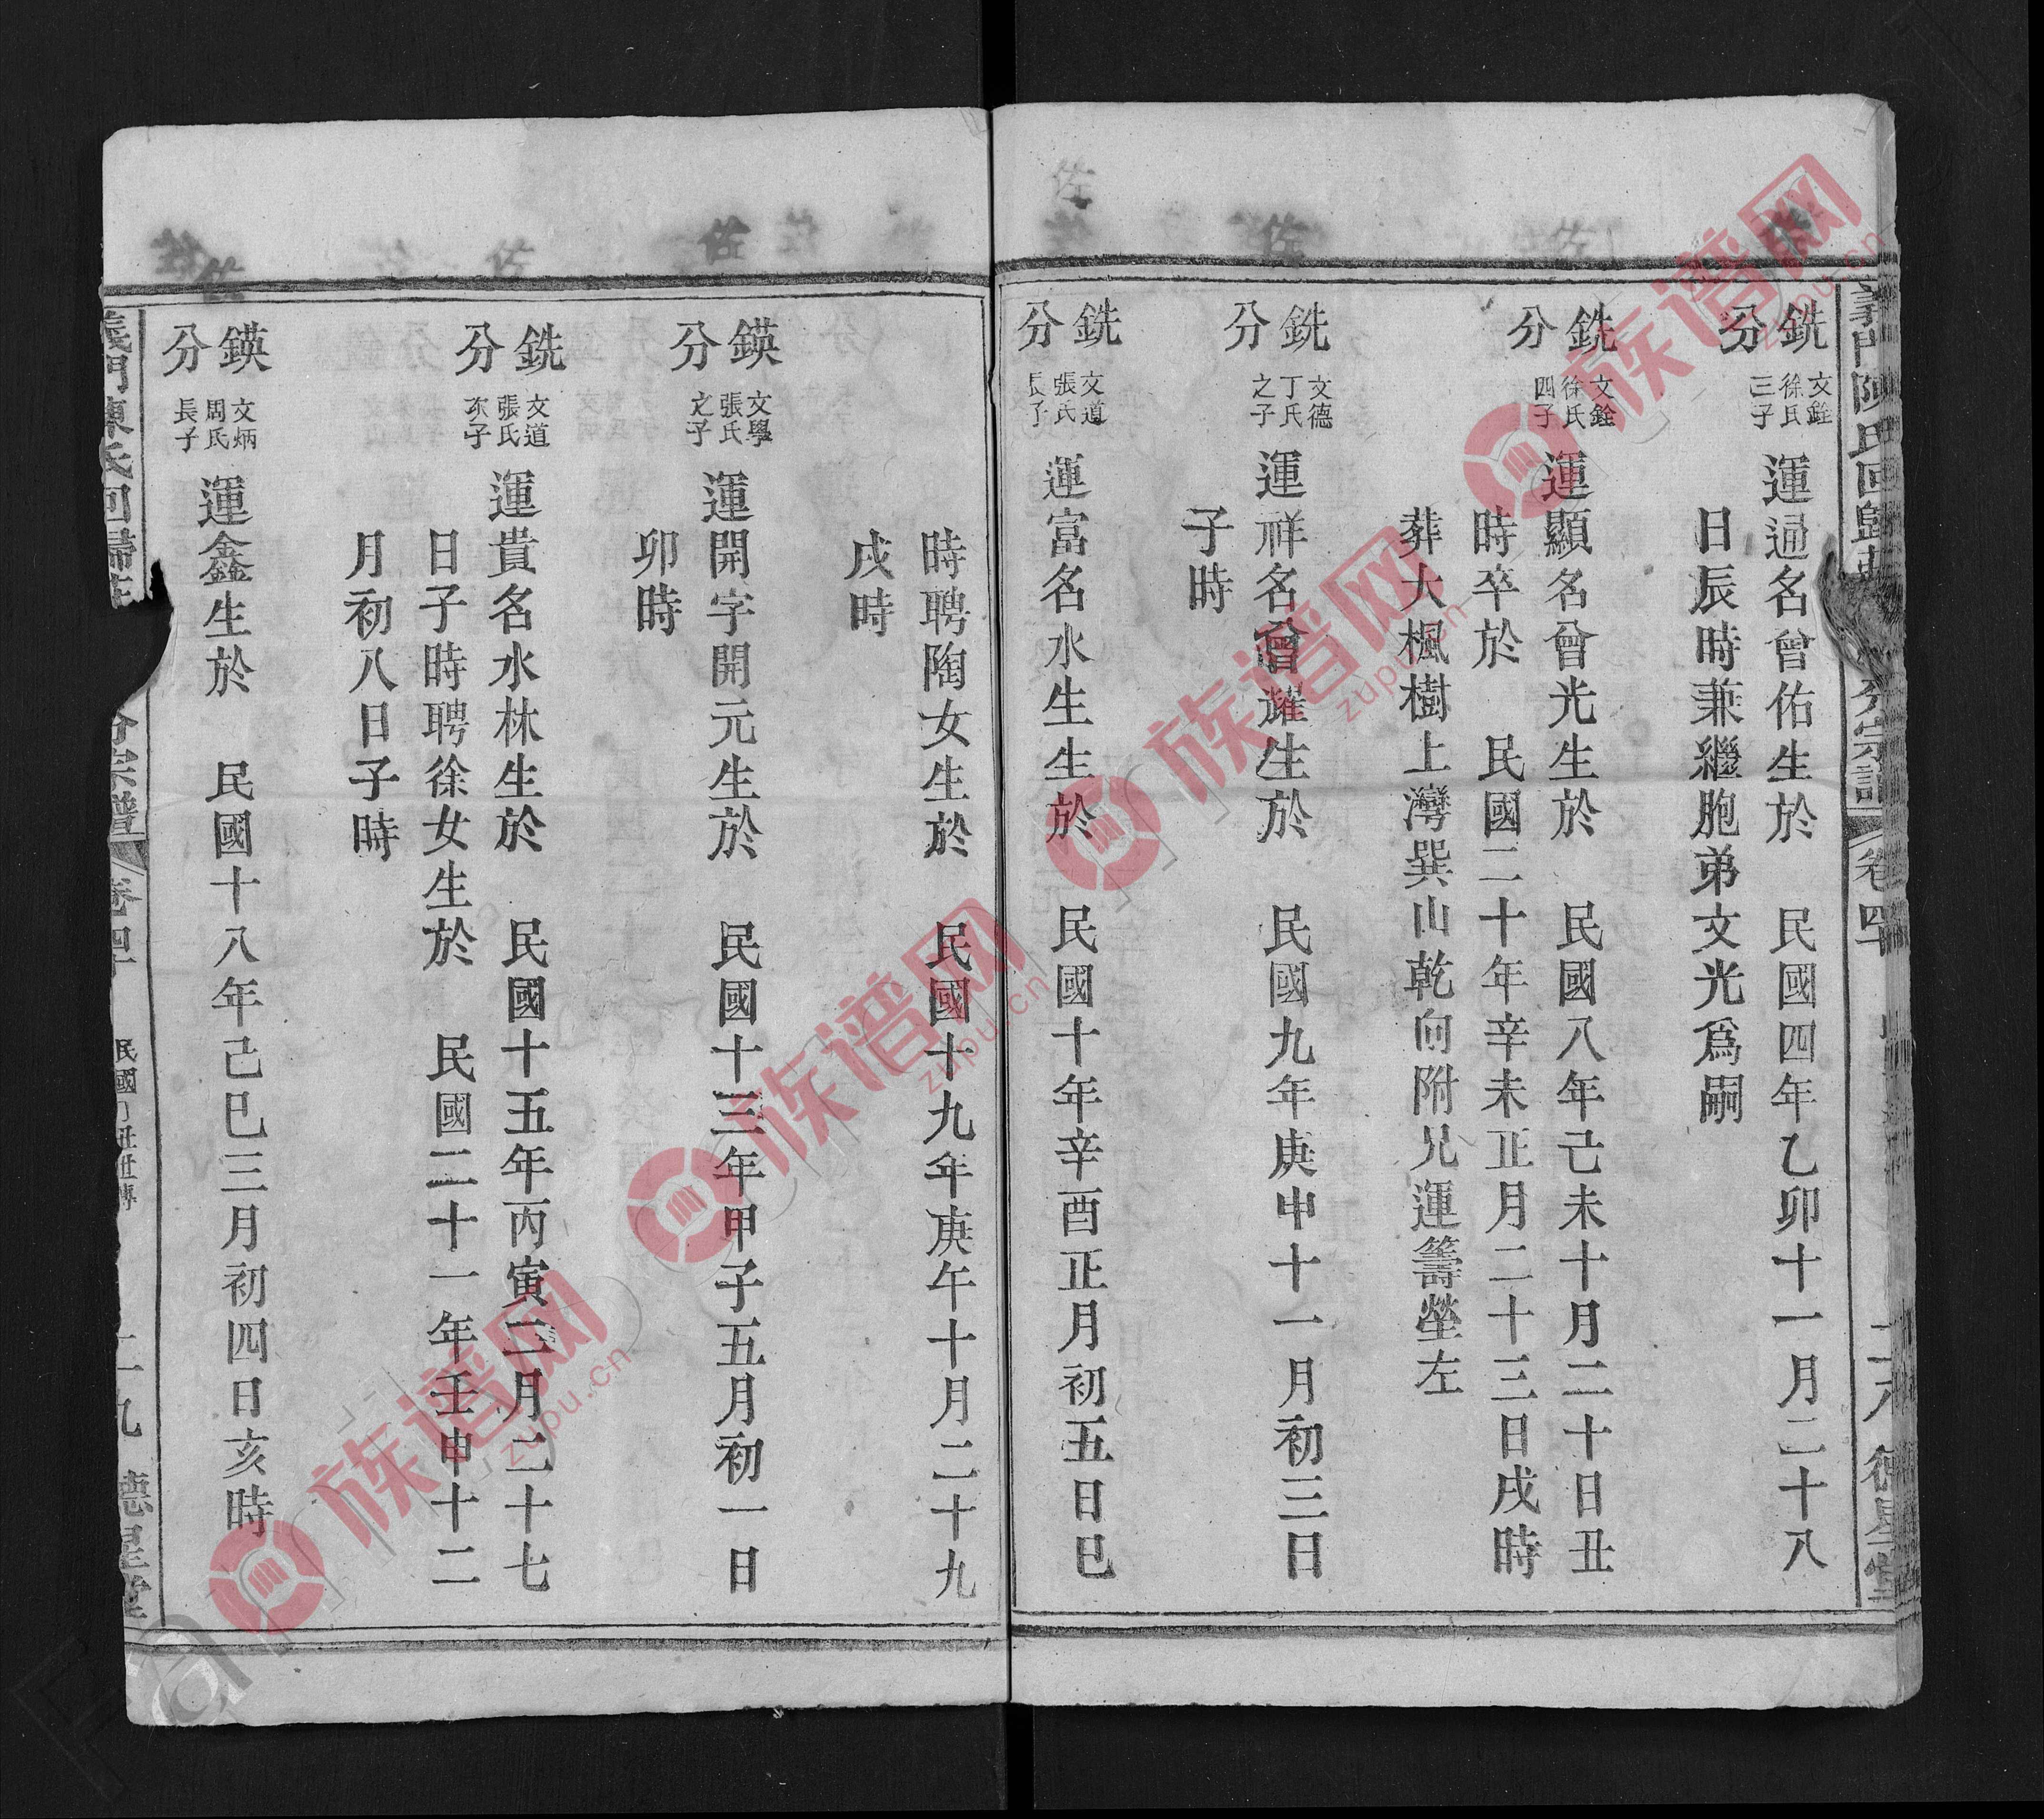 義門陳氏回歸
分宗譜
卷四
德星堂
銑分
文銓徐氏三子
運通名曾佑生於 民國四年乙卯十一月二十八
日辰時兼繼胞弟文光爲嗣
銑分
文銓徐氏四子
運顯名曾光生於 民國八年己未十月二十日丑
時卒於 民國二十年辛未正月二十三日戌時
葬大楓樹上灣巽山乾向附兄運籌塋左
銑分
文德丁氏之子
運祥名曾耀生於 民國九年庚申十一月初三日
子時
銑分
文道張氏長子
運富名水生生於 民國十年辛酉正月初五日巳
時聘陶女生於 民國十九年庚午十月二十九
戌時
鍈分
文學張氏之子
運開字開元生於 民國十三年甲子五月初一日
卯時
銑分
文道張氏次子
運貴名水林生於 民國十五年丙寅二月二十七
日子時聘徐女生於 民國二十一年壬申十二
月初八日子時
鍈分
文炳周氏長子
運鑫生於 民國十八年己巳三月初四日亥時
義門陳氏回歸
分宗譜
卷四
民國
德星堂
族谱网
zupu.cn
族谱网
zupu.cn
族谱网
zupu.cn
族谱网
zupu.cn